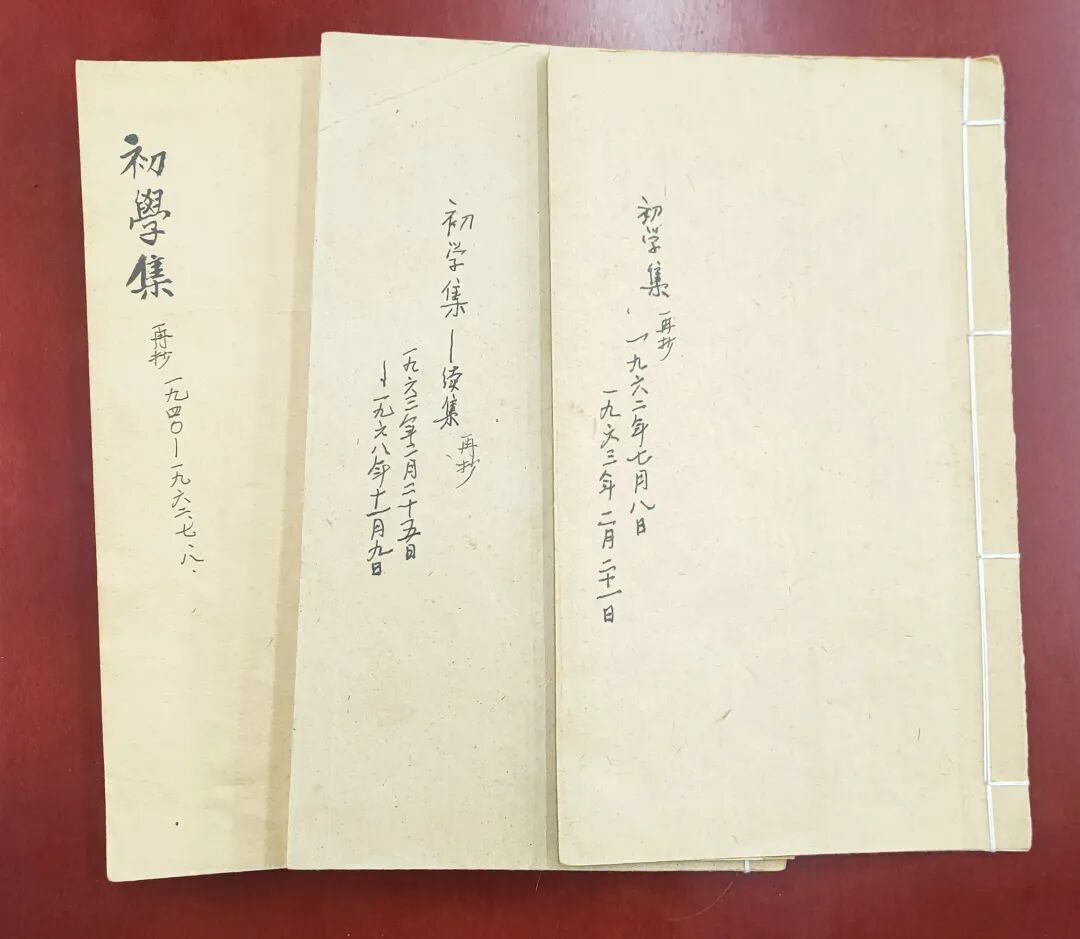 初學集
再抄 一九四〇—一九六二、七、八、
初学集—续集
再抄
一九六三年二月二十五日
—一九六八年十一月九日
初学集
再抄
一九六二年七月八日
一九六三年二月二十一日